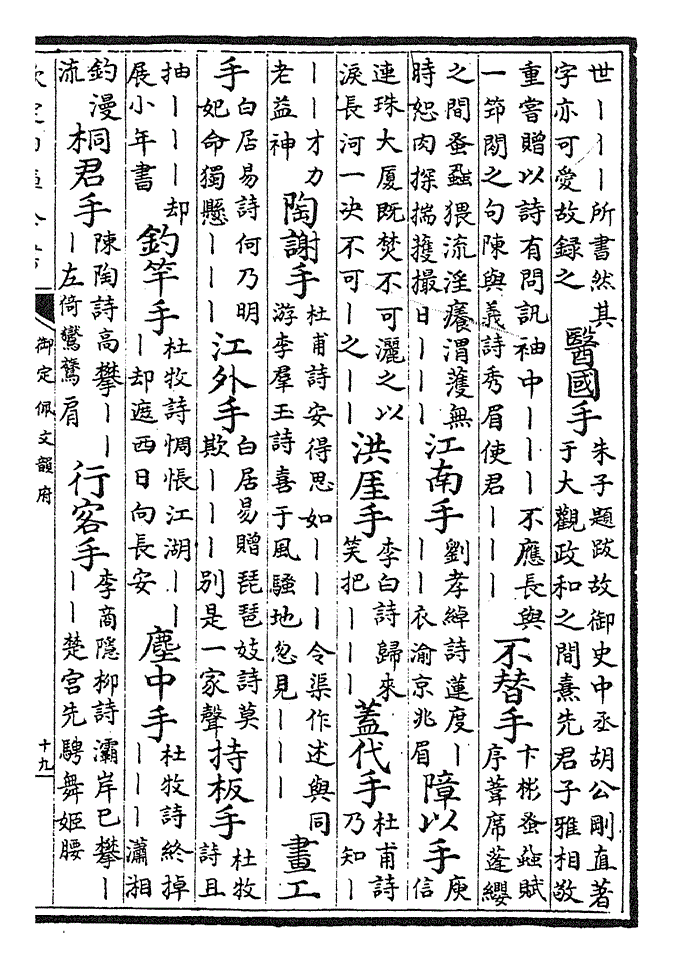 世｜｜｜所書然其
字亦可愛故録之
醫國手
朱子題跋故御史中丞胡公剛直著
于大觀政和之間熹先君子雅相敬
重嘗贈以詩有問訊袖中｜｜｜不應長與
一節閒之句陳與義詩秀眉使君｜｜｜
不替手
卞彬蚤蝨賦
序葦席蓬纓
之間蚤蝨猥流淫癢渭濩無
時恕肉探揣擭撮日｜｜｜
江南手
劉孝綽詩蓮度｜
｜｜衣渝京兆眉
障以手
庾
信
連珠大厦既焚不可灑之以
淚長河一决不可｜之｜｜
洪厓手
李白詩歸來
笑把｜｜｜
蓋代手
杜甫詩
乃知｜
｜｜才力
老益神
陶謝手
杜甫詩安得思如｜｜｜令渠作述與同
游李羣玉詩喜于風騷地忽見｜｜｜
畫工
手
白居易詩何乃明
妃命獨懸｜｜｜
江外手
白居易贈琵琶妓詩莫
欺｜｜｜別是一家聲
持板手
杜牧
詩且
抽｜｜｜却
展小年書
釣竿手
杜牧詩惆悵江湖｜｜
｜却遮西日向長安
塵中手
杜牧詩終掉
｜｜｜瀟湘
釣漫
流
桐君手
陳陶詩高攀｜｜
｜左倚鸞鶩肩
行客手
李商隱柳詩灞岸已攀｜
｜｜楚宫先騁舞姬腰
御定佩文韻府
十九